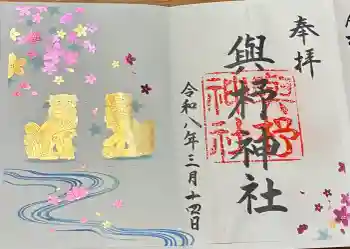 奉拝
與杼神社
令和八年三月十四日
與杼
神社